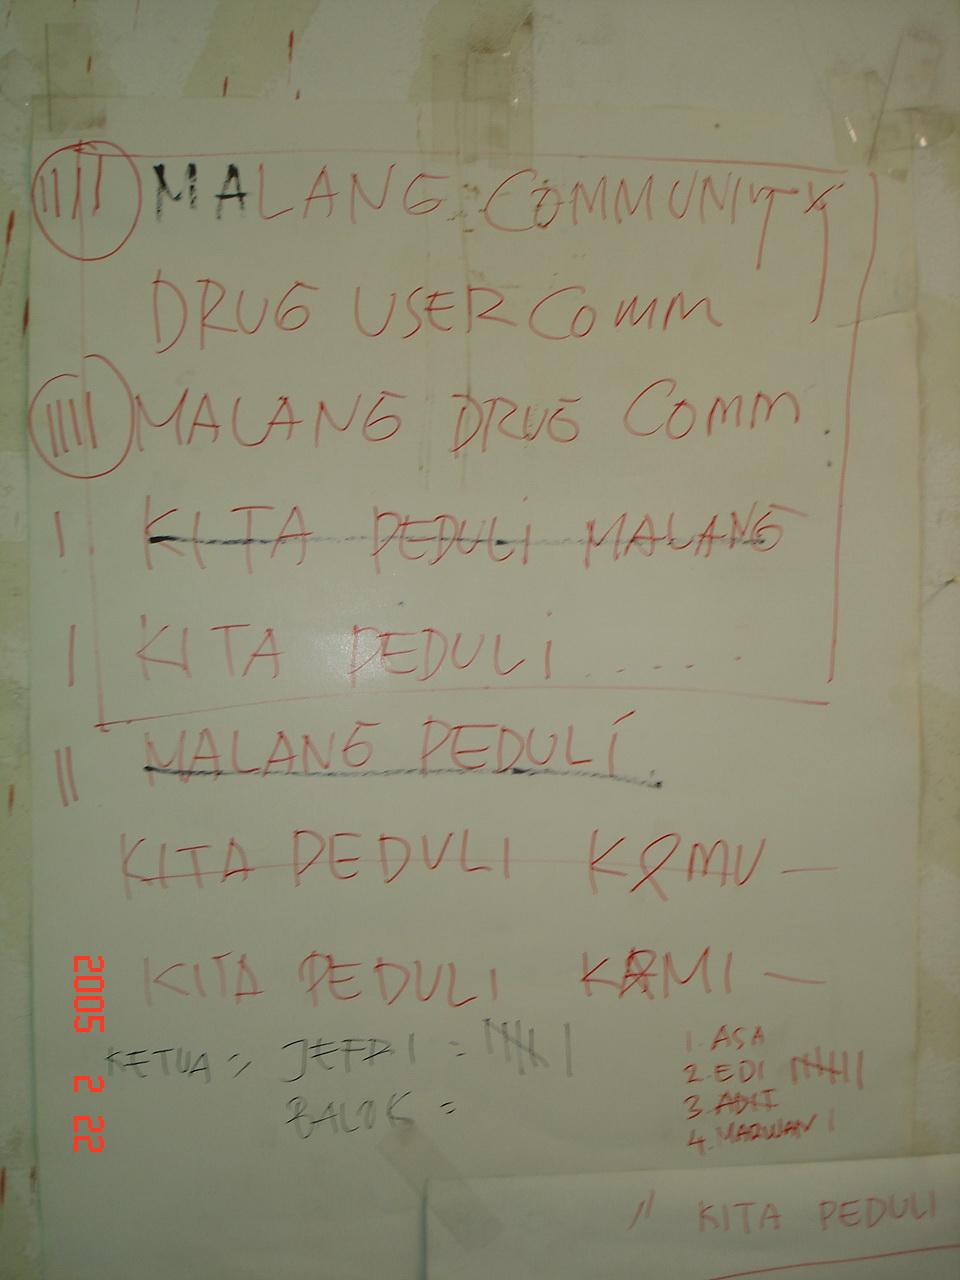 MALANG COMMUNITY
DRUG USER COMM
MALANG DRUG COMM.
KITA PEDULI MALANG
KITA PEDULI .....
MALANG PEDULI.
KITA PEDULI KAMU —
KITA PEDULI KAMI —
KETUA : JEFRI :
BALOK =
1. ASA
2. EDI
3. ADIT
4. MARWAN
" KITA PEDULI
2005 2 22